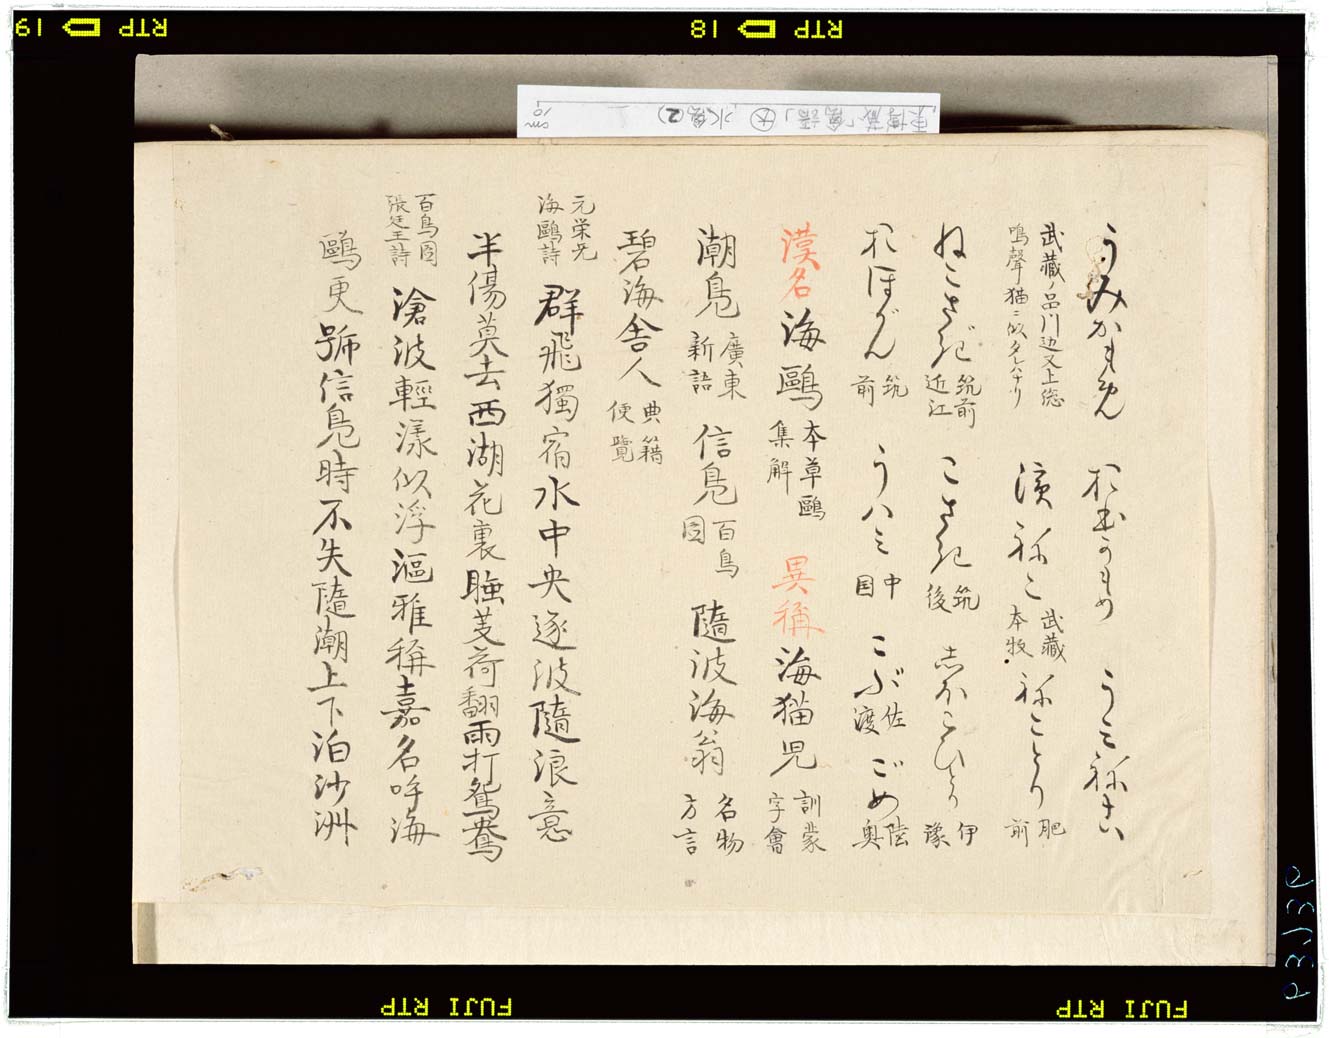 うみかもめ　おきかもめ　うみねこ
武藏ノ品川辺又上総
鳴聲猫ニ似タレハナリ
濱ねこ 武藏本牧　ねことり 肥前
ねこさぎ 筑前近江　こさぎ 筑後　志ほこひとり 伊豫
おほがん 筑前　うハミ 中国　こぶ 佐渡　ごめ 陸奥
漢名 海鷗 本草鷗集解　異稱 海猫児 訓蒙字會
潮鳬 廣東新語　信鳬 百鳥図　隨波海翁 名物方言
碧海舎人 典籍便覽
元栄光海鷗詩 群飛獨宿水中央逐波隨浪意
半傷莫去西湖花裏睡芰荷翻雨打鴛鴦
百鳥図張廷玉詩 滄波輕漾似浮漚雅稱嘉名呼海
鷗更號信鳬時不失隨潮上下泊沙洲
東博蔵「鳥譜」 水鳥(2)
10 cm
19 RTP 18 RTP
FUJI RTP FUJI RTP